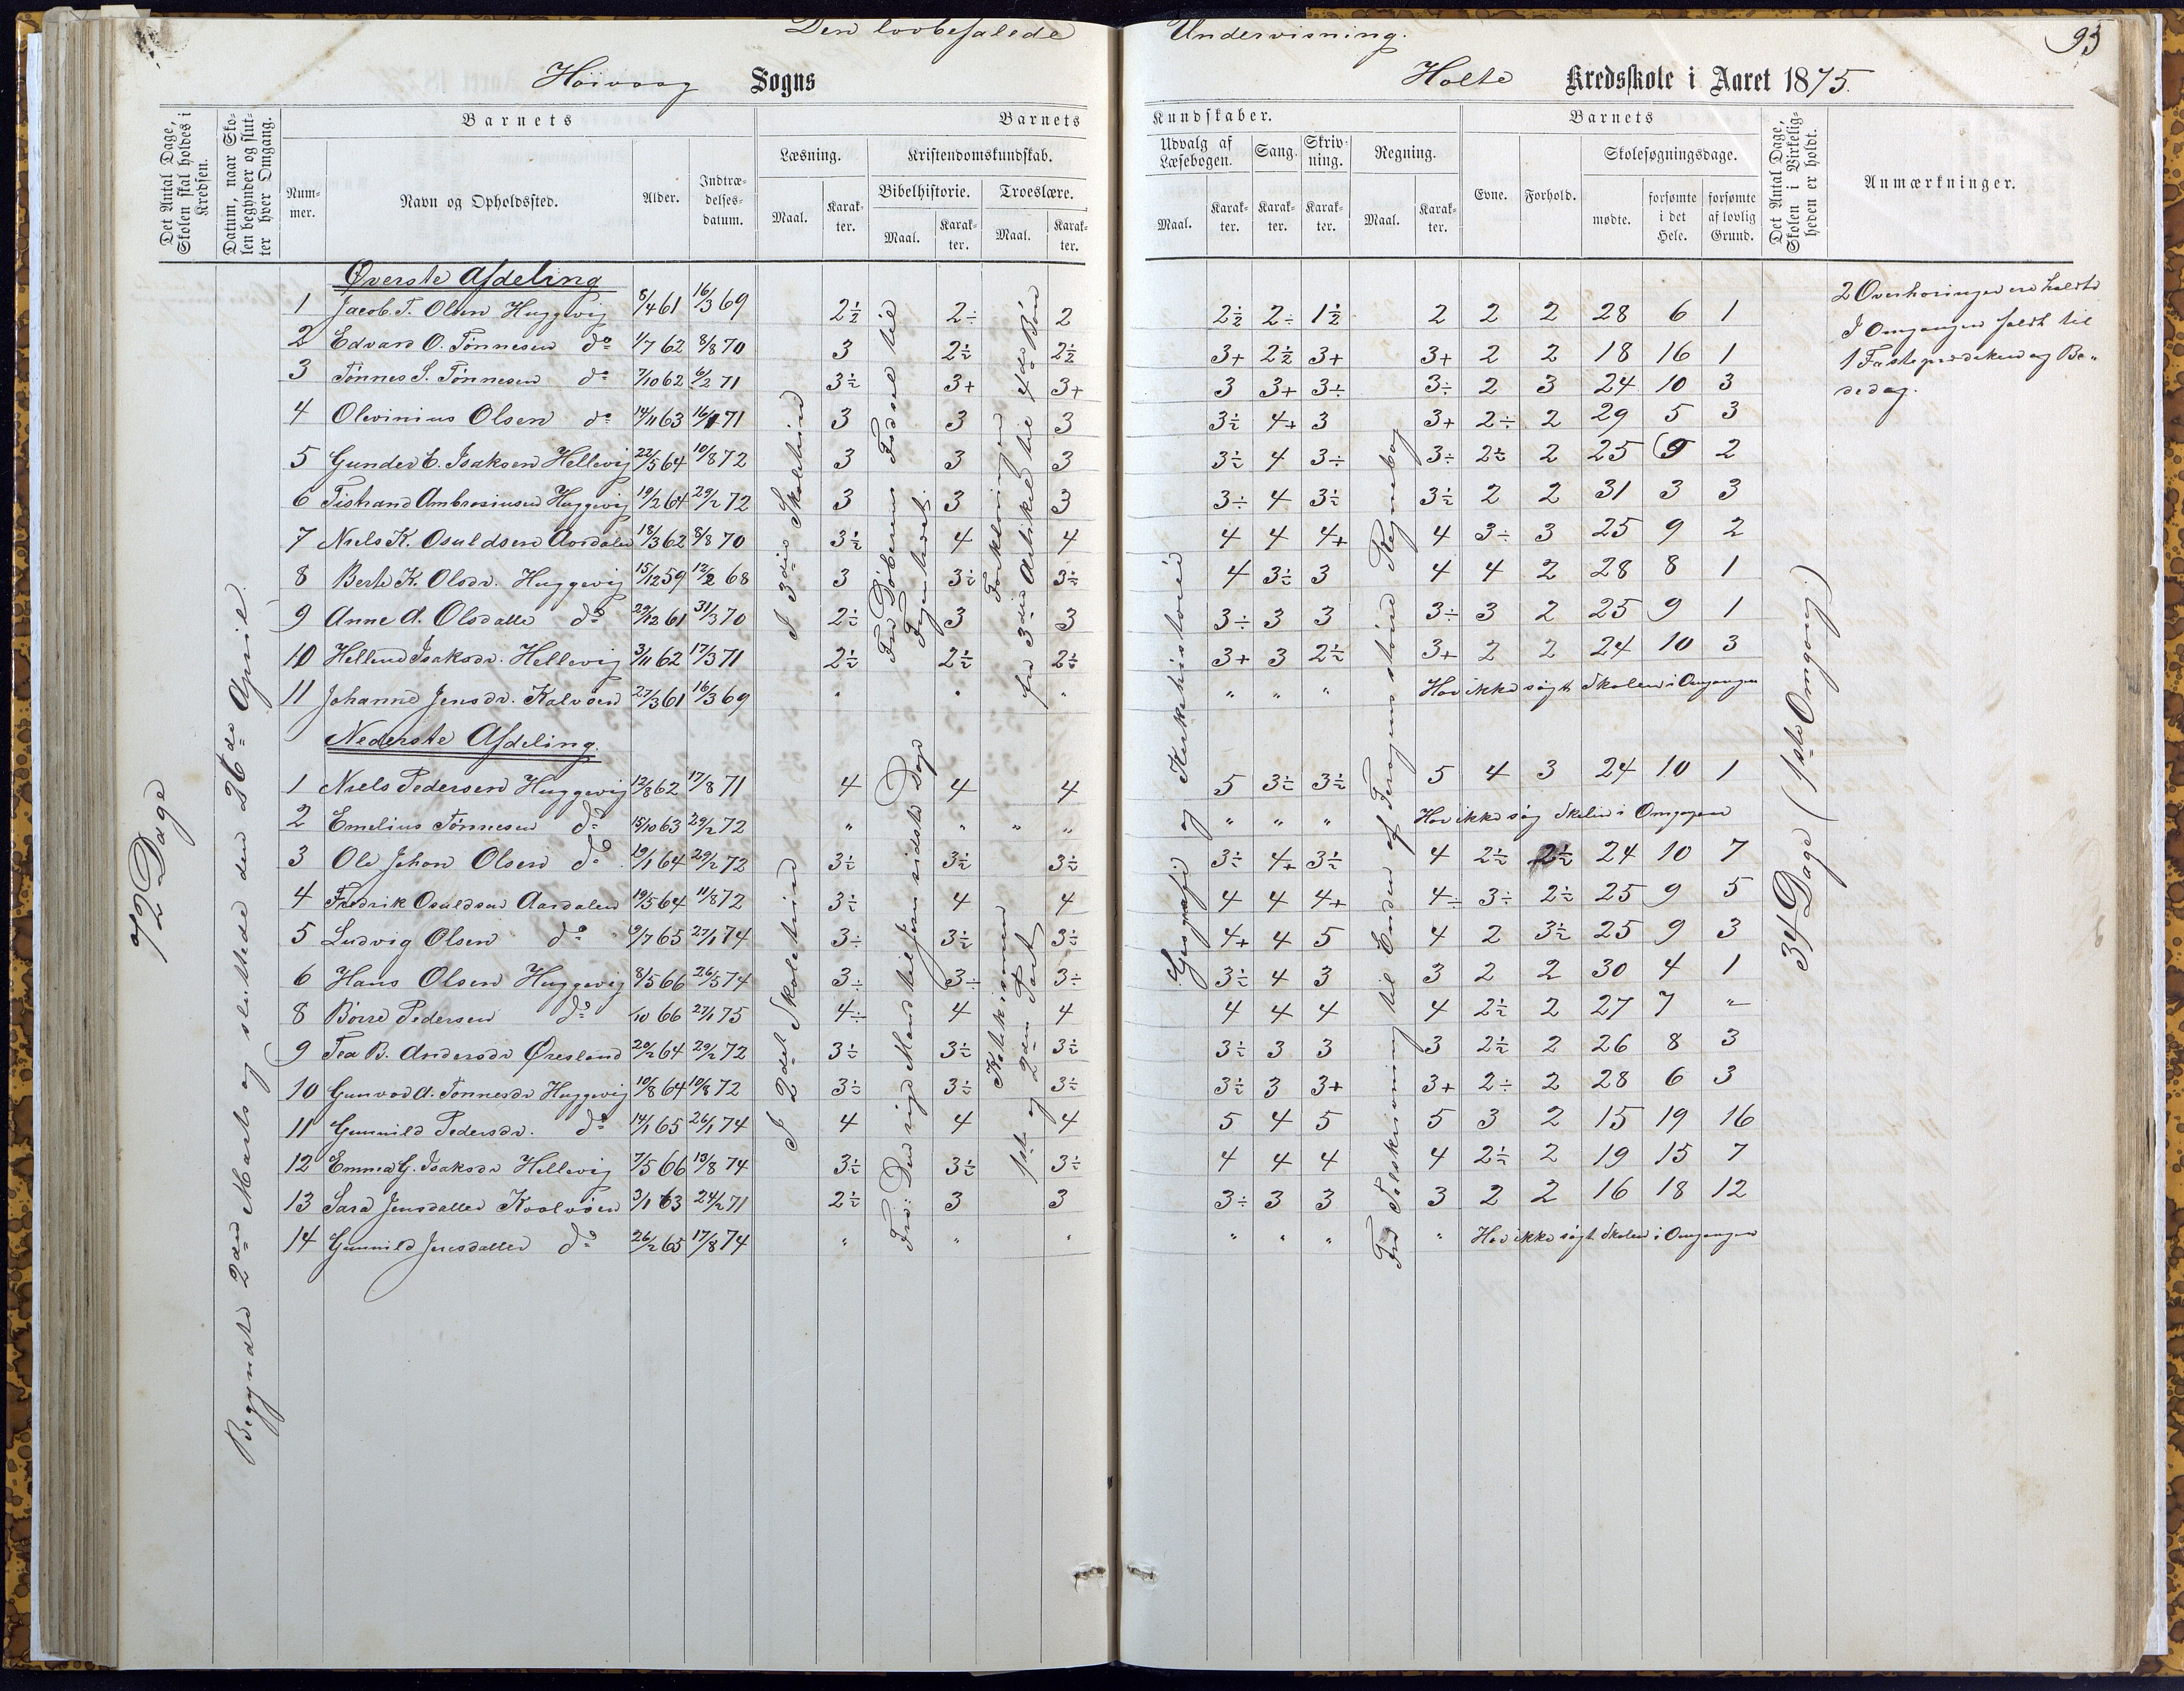 Den lovbefalede Undervisning.
93
Høivaag Sogns Holte Kredsskole i Aaret 1875.
Det Antal Dage, Skolen skal holdes i Kredsen.
Datum, naar Skolen begynder og slutter hver Omgang.
Barnets
Nummer.
Navn og Opholdssted.
Alder.
Indtrædelsesdatum.
Barnets Kundskaber.
Læsning.
Maal. Karakter.
Kristendomskundskab.
Bibelhistorie.
Maal. Karakter.
Troeslære.
Maal. Karakter.
Udvalg af Læsebogen.
Maal. Karakter.
Sang.
Karakter.
Skrivning.
Karakter.
Regning.
Maal. Karakter.
Barnets
Evne. Forhold.
Skolesøgningsdage.
mødte. forsømte i det Hele. forsømte af lovlig Grund.
Det Antal Dage, Skolen i Virkeligheden er holdt.
Anmærkninger.
72 Dage
Begyndte 2den Marts og sluttede den 26de April.
Øverste Afdeling
1 Jacob T. Olsen Huggevig 8/4 61 16/3 69 2½ 2÷ 2 2½ 2÷ 1½ 2 2 2 28 6 1
2 Edvard O. Tønnesen do 1/7 62 8/8 70 3 2½ 2½ 3+ 2½ 3+ 3+ 2 2 18 16 1
3 Tønnes S. Tønnesen do 7/10 62 6/2 71 3½ 3+ 3+ 3 3+ 3÷ 3÷ 2 3 24 10 3
4 Olevinius Olsen do 14/11 63 16/1 71 3 3 3 3½ 4+ 3 3+ 2÷ 2 29 5 3
5 Gunder E. Isaksen Hellevig 22/5 64 10/8 72 3 3 3 3½ 4 3÷ 3÷ 2½ 2 25 9 2
6 Tistrand Ambrosiusen Huggevig 19/2 64 29/2 72 3 3 3 3÷ 4 3½ 3½ 2 2 31 3 3
7 Niels K. Osuldsen Aasdalen 18/3 62 8/8 70 3½ 4 4 4 4 4+ 4 3÷ 3 25 9 2
8 Berte K. Olsdr. Huggevig 15/12 59 12/2 68 3 3½ 3½ 4 3½ 3 4 4 2 28 8 1
9 Anne A. Olsdatter do 29/12 61 31/3 70 2½ 3 3 3÷ 3 3 3÷ 3 2 25 9 1
10 Hellene Isaksdr. Hellevig 3/11 62 17/3 71 2½ 2½ 2½ 3+ 3 2½ 3+ 2 2 24 10 3
11 Johanne Jensdr. Kalvøen 27/3 61 16/3 69 " " " " " " Har ikke søgt Skolen i Omgangen
Nederste Afdeling.
1 Niels Pedersen Huggevig 12/8 62 17/8 71 4 4 4 5 3½ 3½ 5 4 3 24 10 1
2 Emelius Tønnesen do 15/10 63 29/2 72 " " " " " " " Har ikke søg Skolen i Omgangen
3 Ole Johan Olsen do 19/1 64 29/2 72 3½ 3½ 3½ 3½ 4+ 3½ 4 2½ 2½ 24 10 7
4 Fredrik Osuldsen Aasdalen 19/5 64 11/8 72 3½ 4 4 4 4 4+ 4÷ 3÷ 2½ 25 9 5
5 Ludvig Olsen do 9/7 65 27/1 74 3÷ 3½ 3½ 4+ 4 5 4 2 3½ 25 9 3
6 Hans Olsen Huggevig 8/5 66 26/5 74 3÷ 3÷ 3÷ 3½ 4 3 3 2 2 30 4 1
8 Børre Pedersen do /10 66 27/1 75 4÷ 4 4 4 4 4 4 2½ 2 27 7 "
9 Tea B. Andersdr Øresland 20/2 64 29/2 72 3½ 3½ 3½ 3½ 3 3 3 2½ 2 26 8 3
10 Gunvor A. Tønnesdr Huggevig 10/8 64 10/8 72 3½ 3½ 3½ 3½ 3 3+ 3+ 2÷ 2 28 6 3
11 Gunnild Pedersdr. do 14/1 65 26/1 74 4 4 4 5 4 5 5 3 2 15 19 16
12 Emma G. Isaksdr Hellevig 7/5 66 13/8 74 3½ 3½ 3½ 4 4 4 4 2½ 2 19 15 7
13 Sara Jensdatter Kvalvøen 3/1 63 24/2 71 2½ 3 3 3÷ 3 3 3 2 2 16 18 12
14 Gunnild Jensdatter do 26/2 65 17/8 74 " " " " " " " Har ikke søgt Skolen i Omgangen
I 3die Skoletrin
I 2det Skoletrin
Fra Døberens Fødsel til
Fra: Den rige Mand til Jesu sidste Dage
Forklaringen
fra 3die Artikel til 4de Bøn
Katekismen
1ste og 2den Part
Geografi og Kirkehistorie
Fra Tolskrivning til Enden af Regnebog
34 Dage (1ste Omgang.)
2 Overhøringer ere holdte
I Omgangen faldt til
1 Fasteprædiken og Be-
dedag.